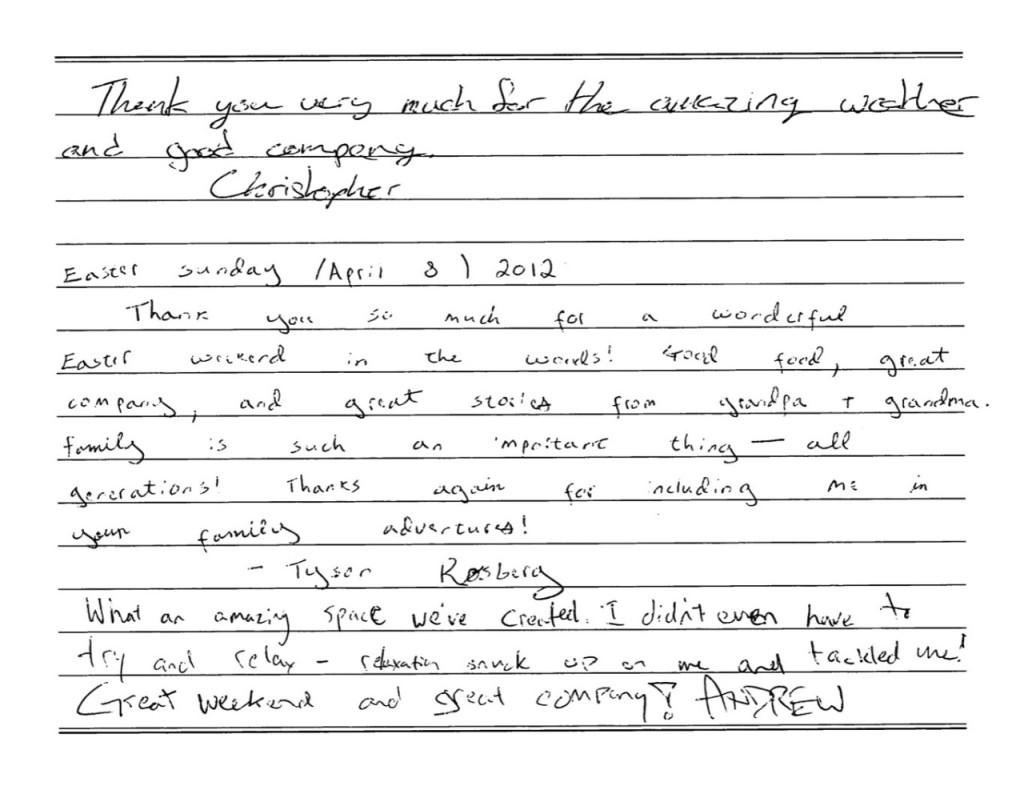 Thank you very much for the amazing weather
and good company.
Christopher
Easter sunday (April 8) 2012
Thank you so much for a wonderful
Easter weekend in the woods! Good food, great
company, and great stories from grandpa + grandma.
family is such an important thing — all
generations! Thanks again for including me in
your family adventures!
- Tyson Rosberg
What an amazing space we've created. I didn't even have to
try and relax - relaxation snuck up on me and tackled me!
Great weekend and great company! ANDREW